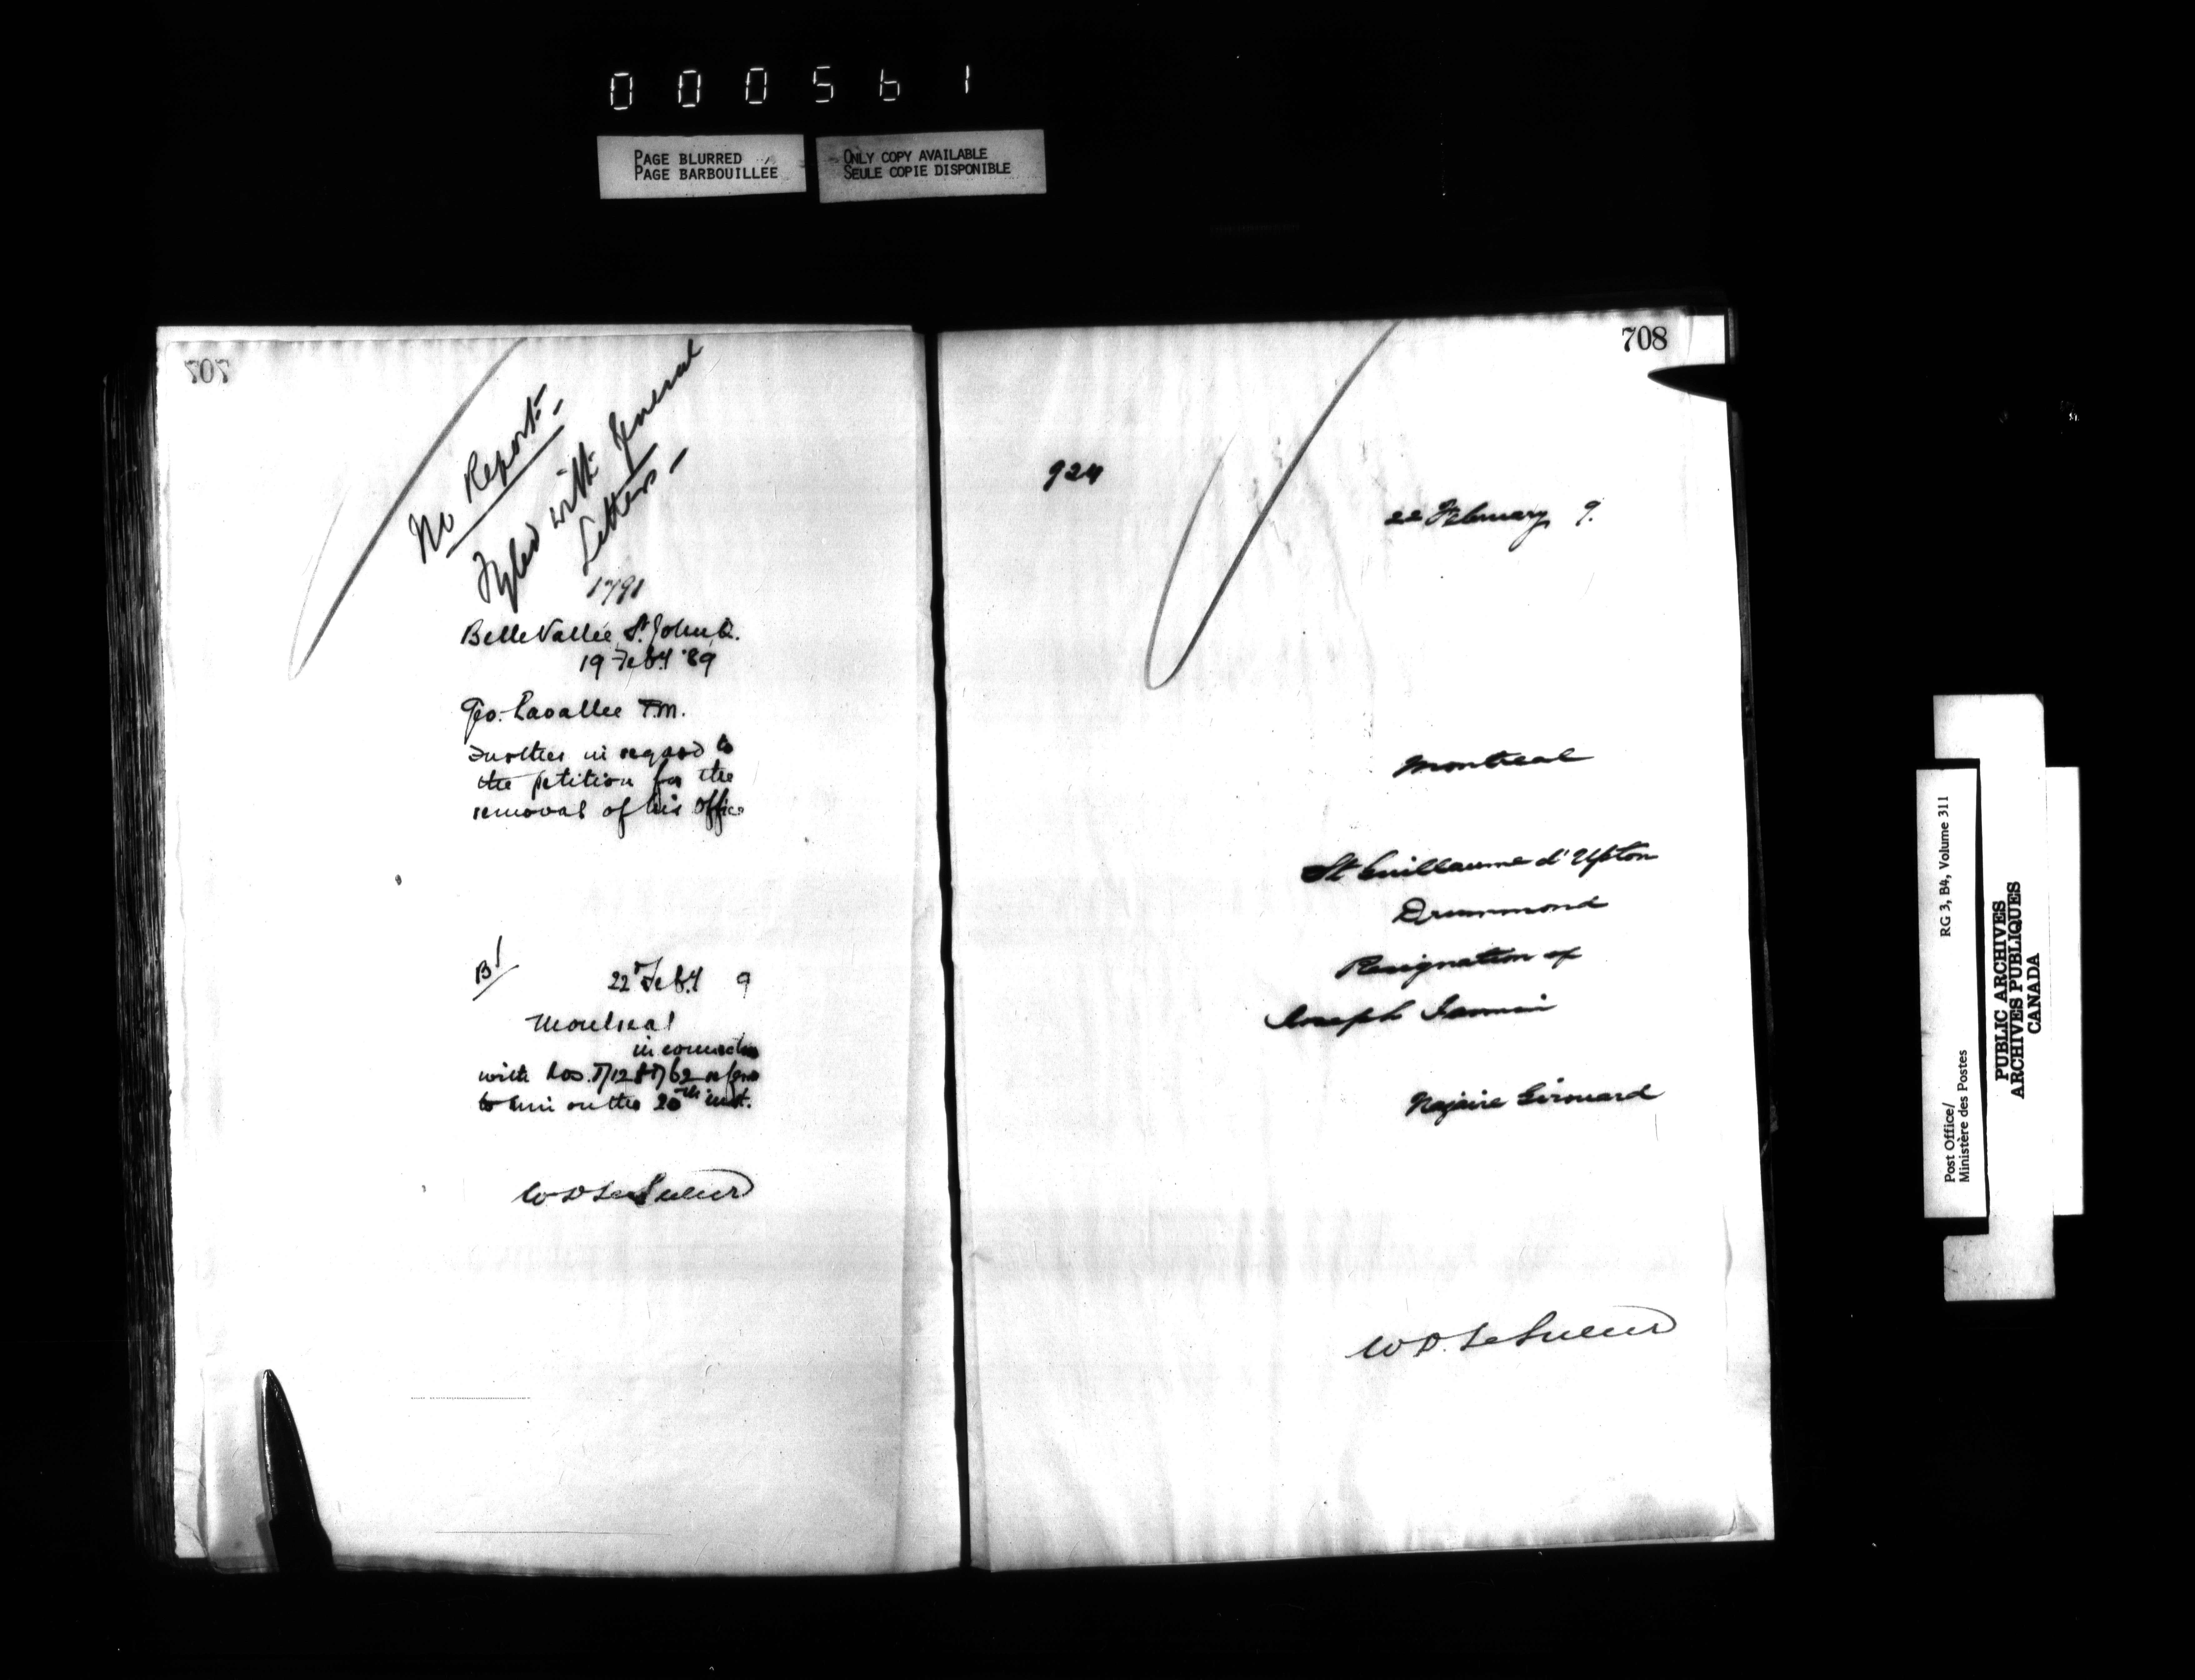 000561
PAGE BLURRED
PAGE BARBOUILLÉE
ONLY COPY AVAILABLE
SEULE COPIE DISPONIBLE
707
No Report.
Fyled with General
Letters
1791
Belle Vallée, St. John Q.
19 Feby '89
Geo. Lavallee P.M.
Further in regard to
the petition for the
removal of his office
B/
22d Feby 9
Montreal
in connection
with Nos.
to him on the 20th inst.
W D LeSueur
708
924
22 February 9.
Montreal
St Guillaume d'Upton
Drummond
Resignation of
Joseph
Girouard
W D. LeSueur
Post Office/ RG 3, B4, Volume 311
Ministère des Postes
PUBLIC ARCHIVES
ARCHIVES PUBLIQUES
CANADA